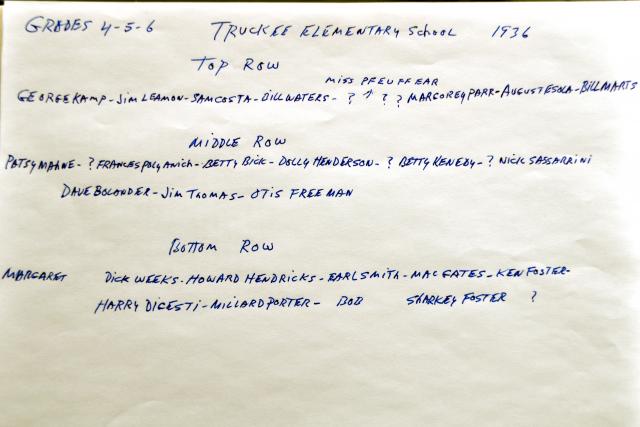 GRADES 4-5-6 TRUCKEE ELEMENTARY SCHOOL 1936
TOP ROW
MISS PFEUFFEAR
GEORGE KAMP - JIM LEAMON - SAM COSTA - BILL WATERS - ? ↑ ? ? MARGOREY PARR - AUGUST ESOLA - BILL MARTS
MIDDLE ROW
PATSY MAHNE - ? FRANCES POLYANICH - BETTY BICK - DOLLY HENDERSON - ? BETTY KENEDY - ? NICK SASSARRINI
DAVE BOLONDER - JIM THOMAS - OTIS FREEMAN
BOTTOM ROW
MARGARET DICK WEEKS - HOWARD HENDRICKS - EARL SMITH - MAC GATES - KEN FOSTER -
HARRY DIGESTI - MILLARD PORTER - BOB SHARKEY FOSTER ?